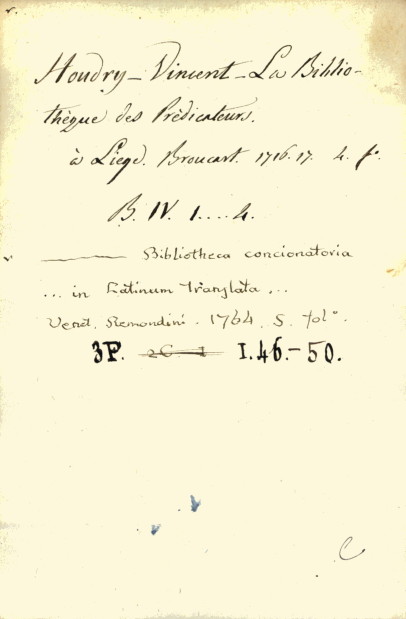 Houdry - Vincent - La Biblio-
thèque des Prédicateurs.
à Liege. Broncart. 1716.17. 4. f.º
B. IV. 1....4.
——— Bibliotheca concionatoria
... in Latinum Translata ...
Venet. Remondini. 1764. 5. folº.
3P. I.46.-50.
C